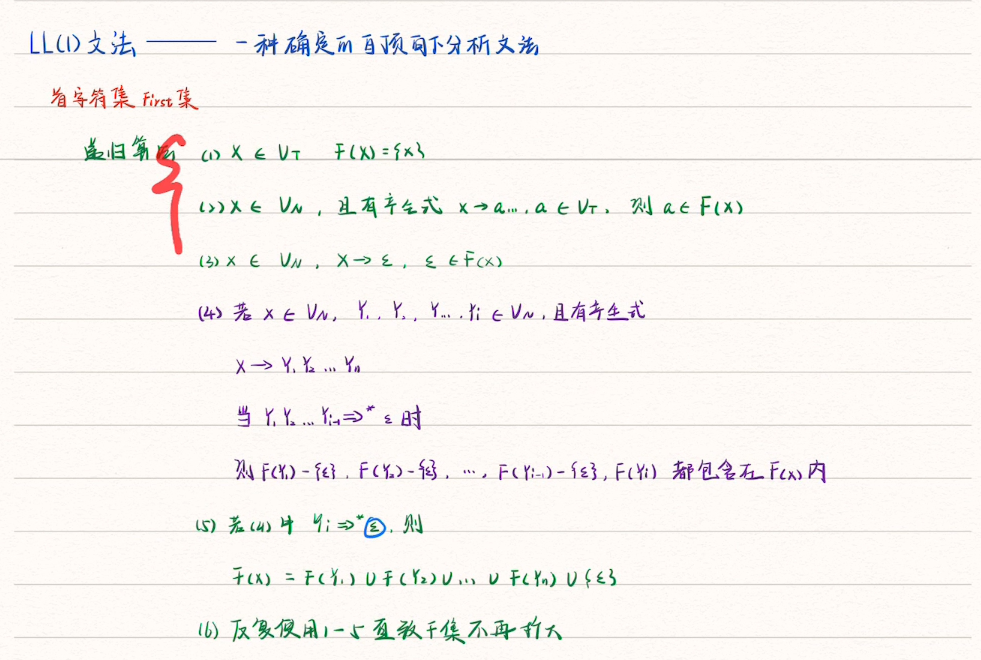 LL(1)文法 —— 一种确定的自顶向下分析文法
首字符集 First集
递归算法 (1) X ∈ VT F(X)={x}
(2) X ∈ VN, 且有产生式 x→a..., a ∈ VT, 则 a∈F(X)
(3) x ∈ VN, X→ε, ε∈F(x)
(4) 若 x ∈ VN, Y1, Y2, Y... Yi ∈ VN, 且有产生式
X→Y1Y2...Yn
当 Y1Y2...Yi-1⇒*ε时
则F(Y1)-{ε}, F(Y2)-{ε}, ..., F(Yi-1)-{ε}, F(Yi) 都包含在 F(x)内
(5) 若(4)中 Yi⇒*ε, 则
F(x) = F(Y1) U F(Y2) U ... U F(Yn) U {ε}
(6) 反复使用1-5直致F集不再扩大